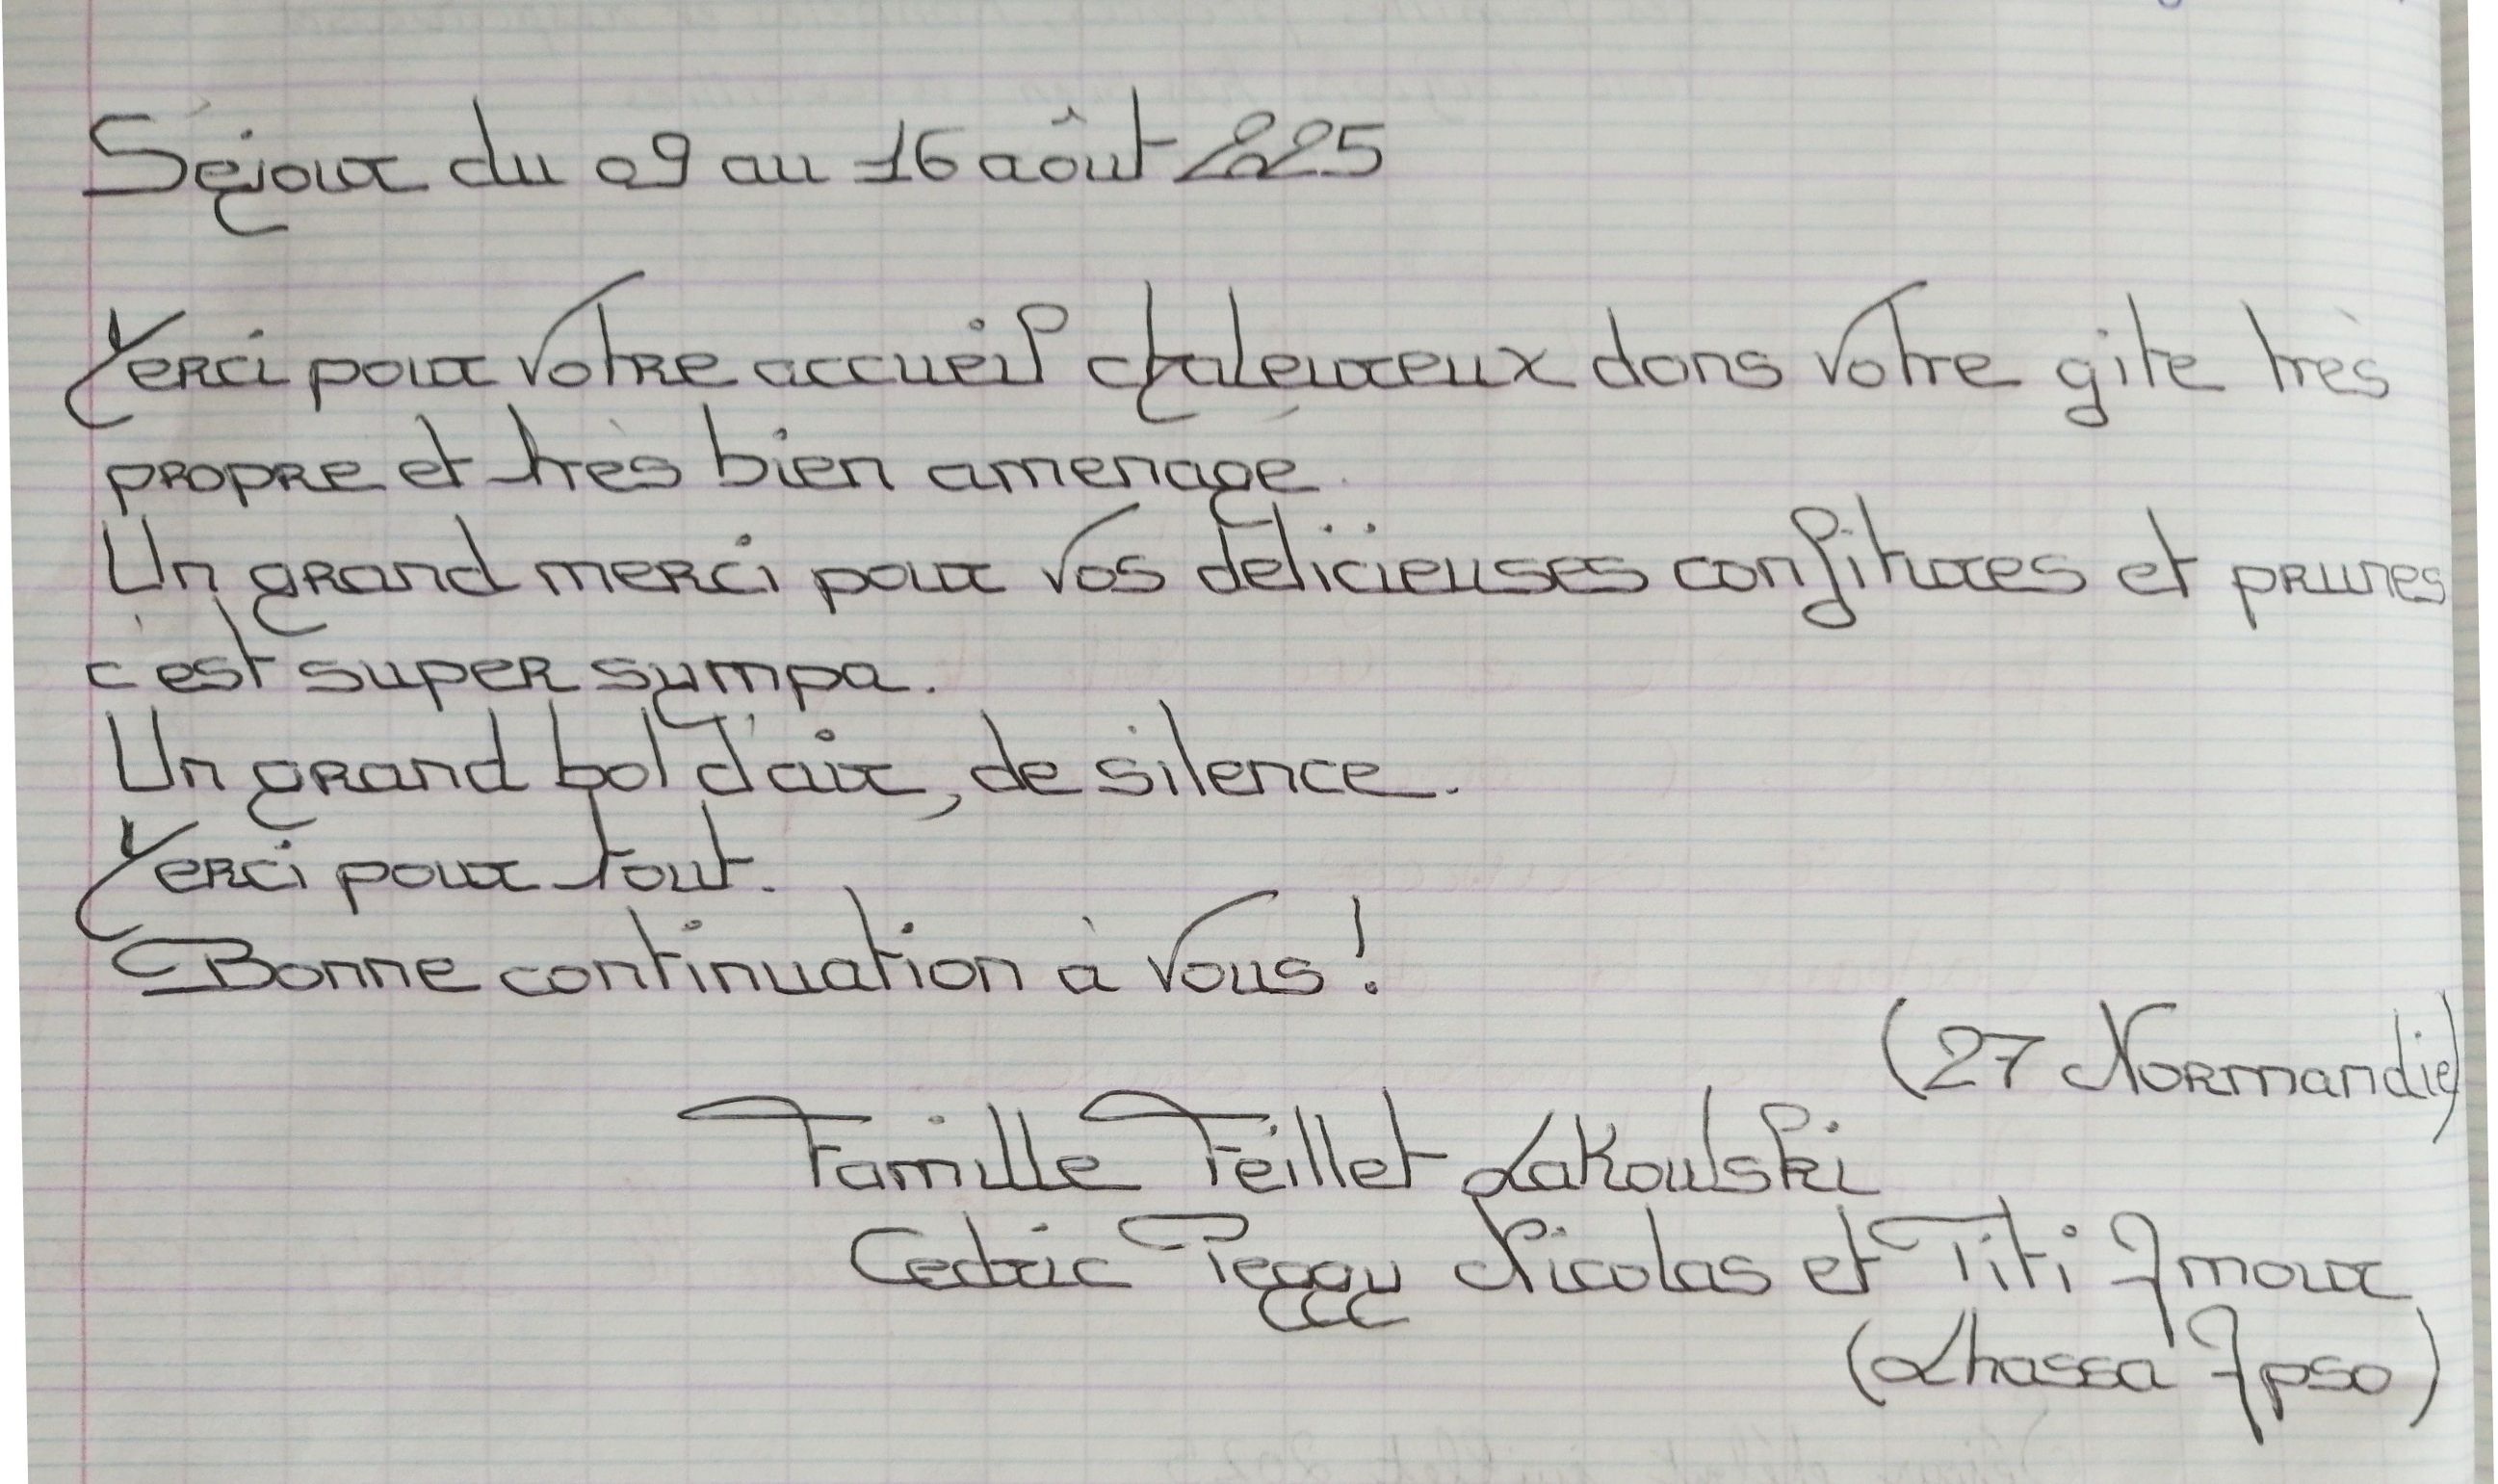 Séjour du 09 au 16 août 2025
Merci pour votre accueil chaleureux dans votre gite très
propre et très bien aménagé.
Un grand merci pour vos délicieuses confitures et prunes
c'est super sympa.
Un grand bol d'air, de silence.
Merci pour tout.
Bonne continuation à vous !
(27 Normandie)
Famille Feillet Lakowski
Cedric Peggy Nicolas et Titi Amour
(Lhassa Apso)